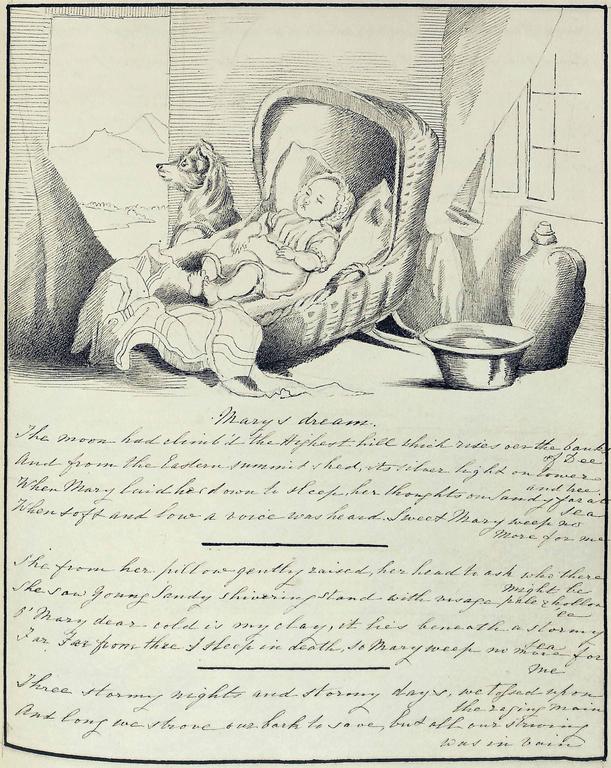 Mary's dream.
The moon had climb'd the Highest hill which rises over the banks
of Dee
And from the Eastern summit shed, its silver light on tower
and tree.
When Mary laid her down to sleep, her thoughts on Sandy far at
sea
When soft and low a voice was heard. Sweet Mary weep no
More for me
She from her pillow gently raised, her head to ask who there
might be
She saw young Sandy shivering stand with visage pale & hollow
ee
O' Mary dear cold is my clay, it lies beneath a stormy
sea
Far Far from thee I sleep in death, so Mary weep no more for
me
Three stormy nights and stormy days, we tossed upon
the raging main
And long we strove our bark to save, but all our striving
was in vain